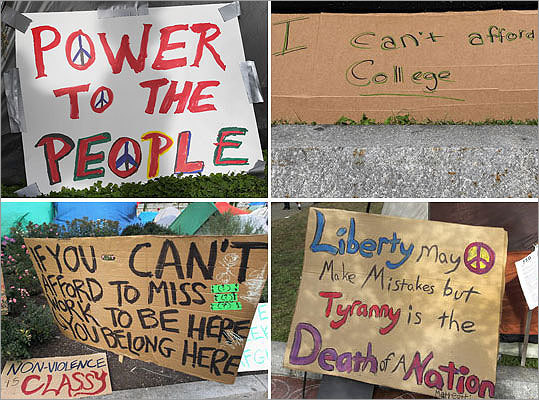 POWER
TO THE
PEOPLE
I can't afford
College
IF YOU CAN'T
AFFORD TO MISS
WORK TO BE HERE
YOU BELONG HERE
NON-VIOLENCE
IS CLASSY
Liberty May
Make Mistakes but
Tyranny is the
Death of A Nation
Matteotti